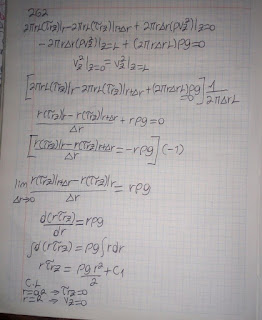 2G2
2πrL(τrz)|r - 2πrL(τrz)|r+Δr + 2πrΔr(ρv²z)|z=0
- 2πrΔr(ρv²z)|z=L + (2πrΔrL)ρg = 0
v²z|z=0 = v²z|z=L
[2πrL(τrz)|r - 2πrL(τrz)|r+Δr + (2πrΔrL)ρg = 0] 1/2πΔrL
r(τrz)|r - r(τrz)|r+Δr / Δr + rρg = 0
[r(τrz)|r - r(τrz)|r+Δr / Δr = -rρg] (-1)
lim Δr→0 r(τrz)|r+Δr - r(τrz)|r / Δr = rρg
d(rτrz)/dr = rρg
∫d(rτrz) = ρg∫rdr
rτrz = ρgr²/2 + C1
C.L